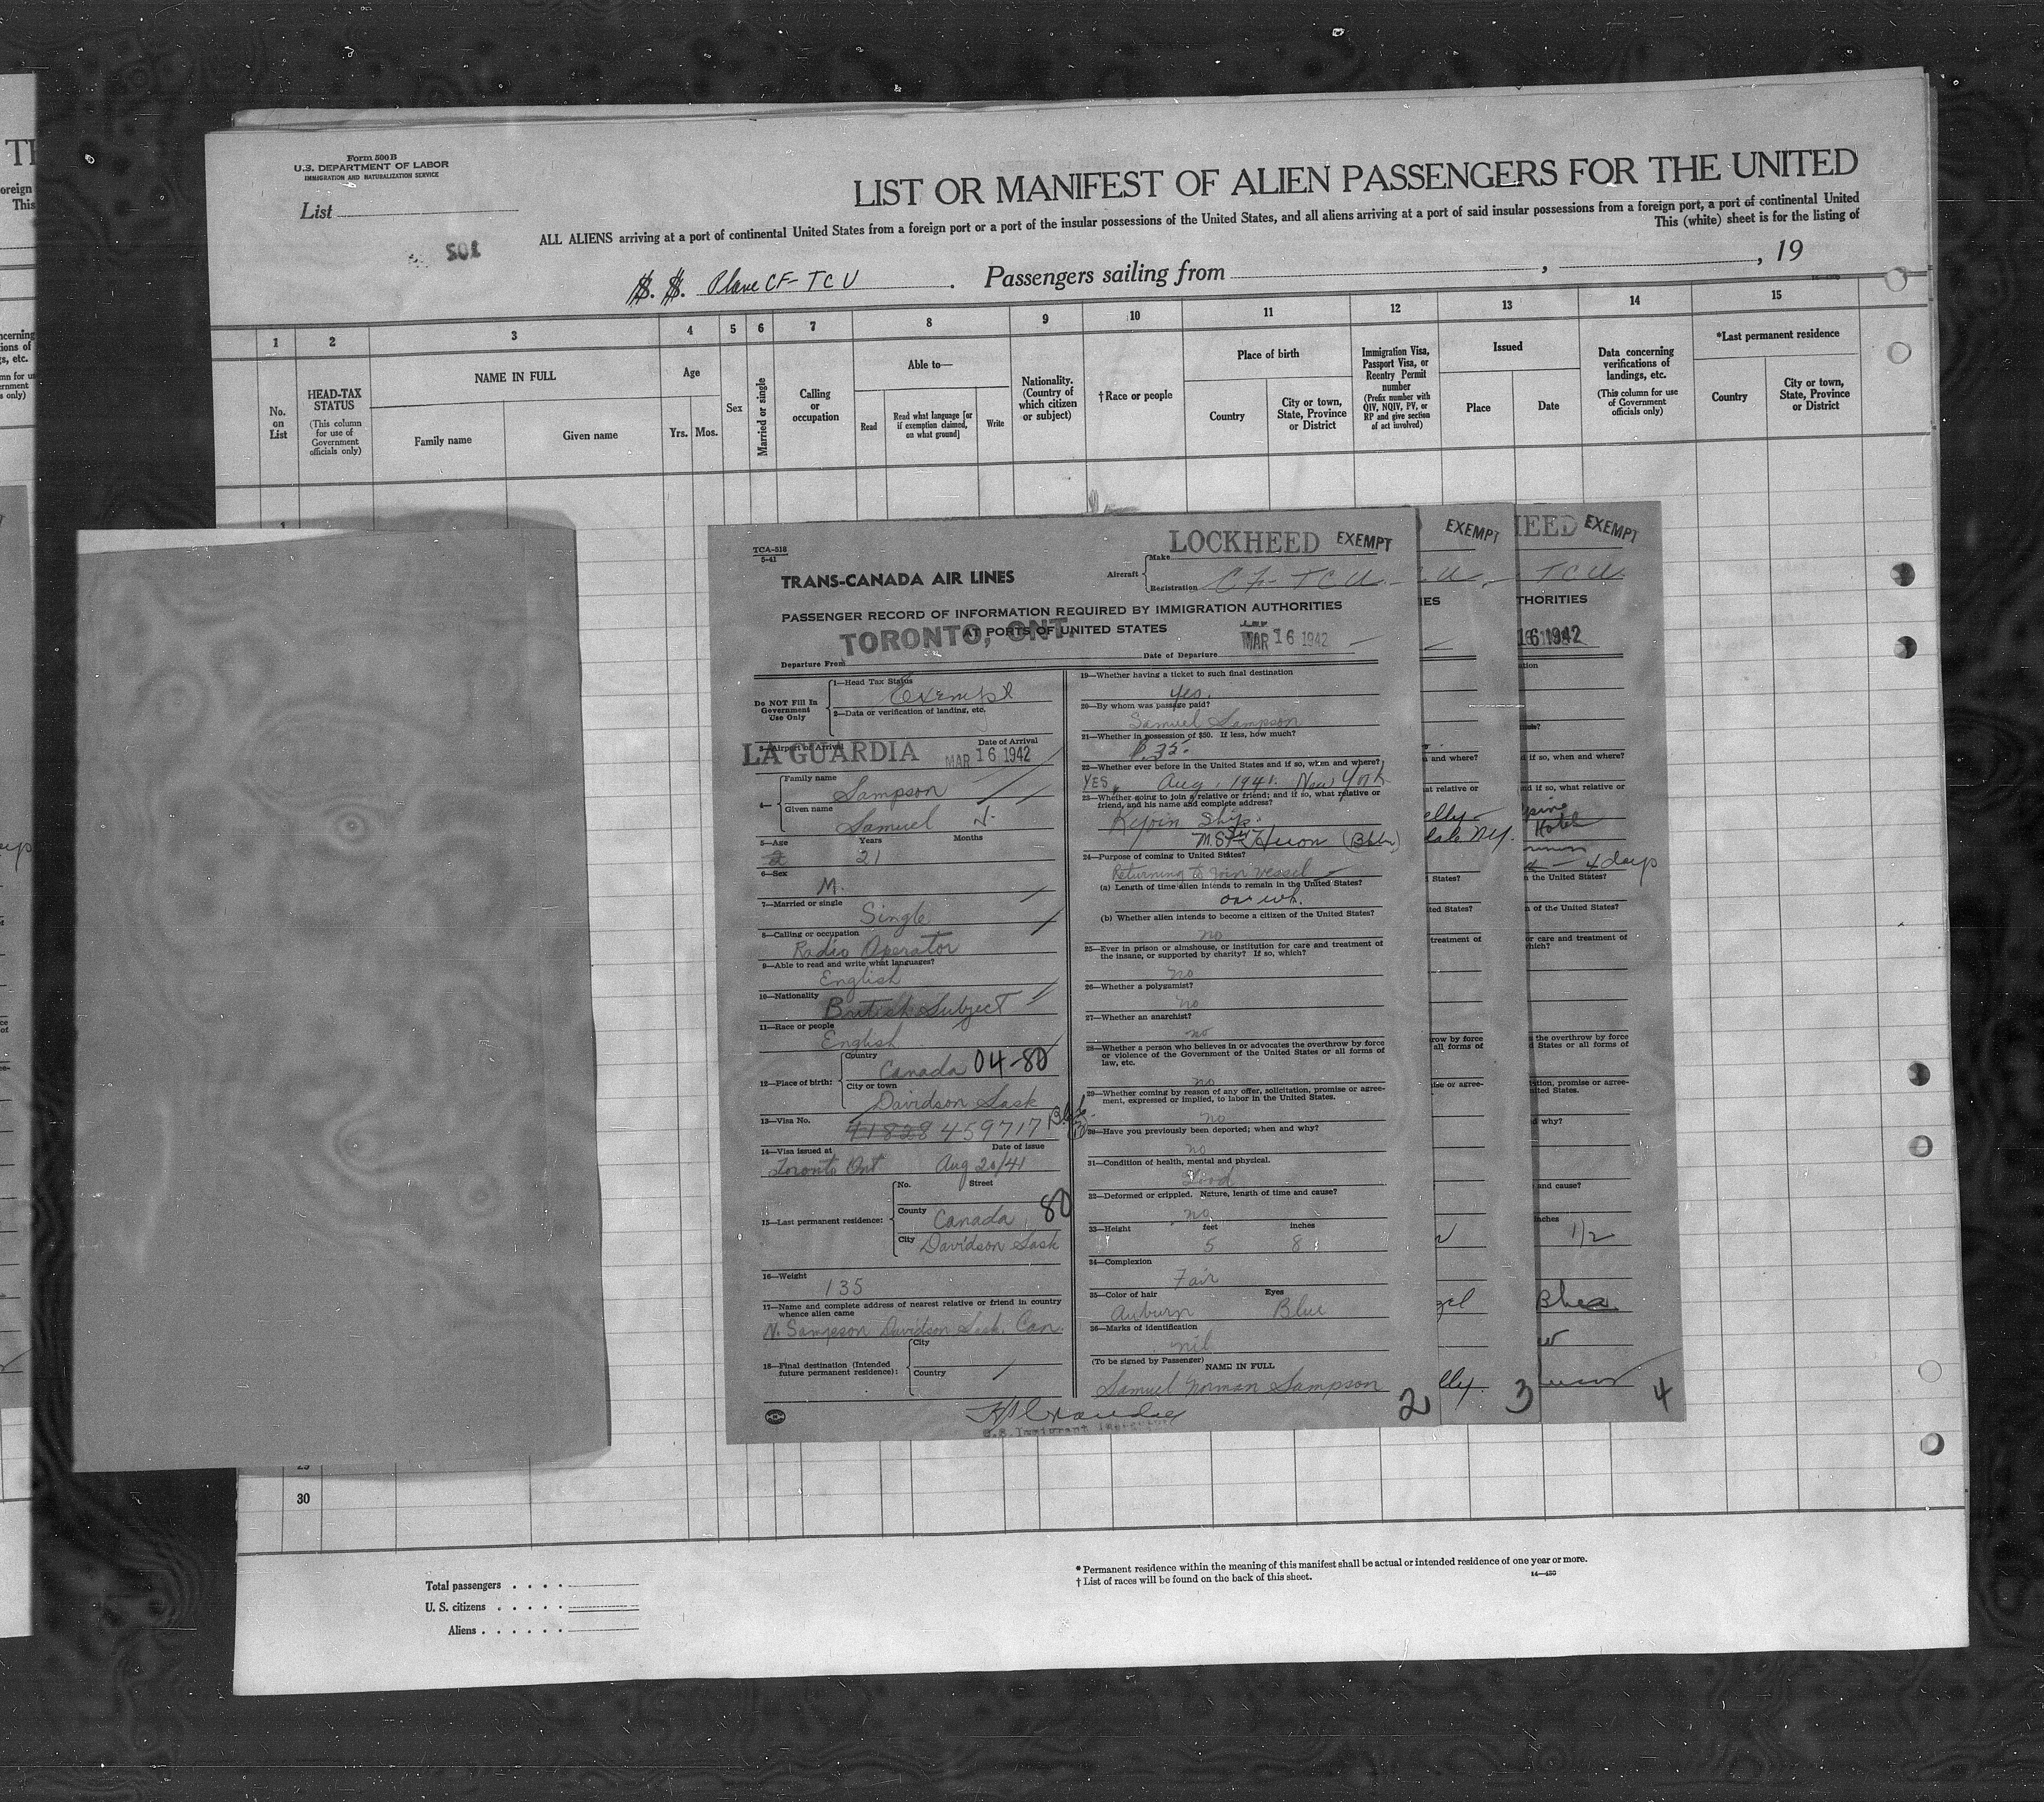 Form 500B
U.S. DEPARTMENT OF LABOR
IMMIGRATION AND NATURALIZATION SERVICE
List
501
LIST OR MANIFEST OF ALIEN PASSENGERS FOR THE UNITED
ALL ALIENS arriving at a port of continental United States from a foreign port or a port of the insular possessions of the United States, and all aliens arriving at a port of said insular possessions from a foreign port, a port of continental United
This (white) sheet is for the listing of
S. S. Plane CF-TCU. Passengers sailing from , , 19
1 2 3 4 5 6 7 8 9 10 11 12 13 14 15
No. on List
HEAD-TAX STATUS
(This column for use of Government officials only)
NAME IN FULL
Family name
Given name
Age
Yrs. Mos.
Sex
Married or single
Calling or occupation
Able to—
Read
Read what language [or if exemption claimed, on what ground]
Write
Nationality. (Country of which citizen or subject)
†Race or people
Place of birth
Country
City or town, State, Province or District
Immigration Visa, Passport Visa, or Reentry Permit number
(Prefix number with QIV, NQIV, PV, or RP and give section of act involved)
Issued
Place
Date
Data concerning verifications of landings, etc.
(This column for use of Government officials only)
*Last permanent residence
Country
City or town, State, Province or District
TCA-518
5-41
TRANS-CANADA AIR LINES
Aircraft
Make LOCKHEED EXEMPT
Registration CF-TCU
PASSENGER RECORD OF INFORMATION REQUIRED BY IMMIGRATION AUTHORITIES
AT PORTS OF UNITED STATES
Departure From TORONTO, ONT. Date of Departure MAR 16 1942
Do NOT Fill In Government Use Only
1—Head Tax Status Exempt
2—Data or verification of landing, etc.
3—Airport of Arrival LA GUARDIA Date of Arrival MAR 16 1942
4— Family name Sampson
Given name Samuel N.
5—Age Years 21 Months
6—Sex M.
7—Married or single Single
8—Calling or occupation Radio Operator
9—Able to read and write what languages? English
10—Nationality British Subject
11—Race or people English
12—Place of birth: Country Canada 04-80
City or town Davidson Sask
13—Visa No. 41828 459717
14—Visa issued at Toronto Ont Date of issue Aug 20/41
15—Last permanent residence: No. Street
County Canada 80
City Davidson Sask
16—Weight 135
17—Name and complete address of nearest relative or friend in country whence alien came
N. Sampson Davidson Sask. Can.
18—Final destination (Intended future permanent residence): City
Country
19—Whether having a ticket to such final destination
yes.
20—By whom was passage paid?
Samuel Sampson
21—Whether in possession of $50. If less, how much?
$35.
22—Whether ever before in the United States and if so, when and where?
YES, Aug. 1941. New York
23—Whether going to join a relative or friend; and if so, what relative or friend, and his name and complete address?
Rejoin Ship.
24—Purpose of coming to United States?
Returning to join vessel
(a) Length of time alien intends to remain in the United States?
one wk.
(b) Whether alien intends to become a citizen of the United States?
no
25—Ever in prison or almshouse, or institution for care and treatment of the insane, or supported by charity? If so, which?
no
26—Whether a polygamist?
no
27—Whether an anarchist?
no
28—Whether a person who believes in or advocates the overthrow by force or violence of the Government of the United States or all forms of law, etc.
no
29—Whether coming by reason of any offer, solicitation, promise or agreement, expressed or implied, to labor in the United States.
no
30—Have you previously been deported; when and why?
no
31—Condition of health, mental and physical.
Good
32—Deformed or crippled. Nature, length of time and cause?
no
33—Height feet 5 inches 8
34—Complexion
Fair
35—Color of hair Auburn Eyes Blue
36—Marks of identification
nil
(To be signed by Passenger) NAME IN FULL
Samuel Norman Sampson
U.S. Immigrant Inspector
2
EXEMPT
3
EXEMPT
TCU
THORITIES
16 1942
Hotel
4 days
1/2
4
30
Total passengers
U. S. citizens
Aliens
* Permanent residence within the meaning of this manifest shall be actual or intended residence of one year or more.
† List of races will be found on the back of this sheet.
14—430